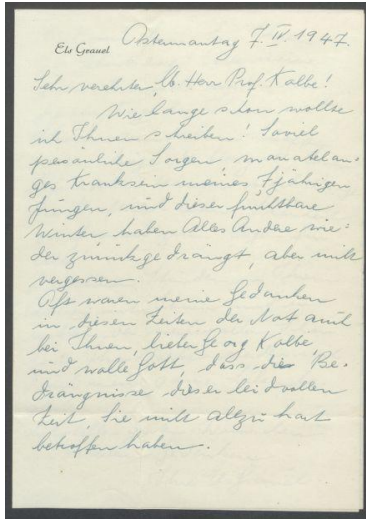 Els Grauel
Ostermontag 7. IV. 1947.
Sehr verehrter, lb. Herr Prof. Kolbe!
Wie lange schon wollte
ich Ihnen schreiben! Soviel
persönliche Sorgen, monatelan-
ges Kranksein meines 7jährigen
Jungen, und dieser furchtbare
Winter haben Alles Andere wie-
der zurückgedrängt, aber nicht
vergessen.
Oft waren meine Gedanken
in diesen Zeiten der Not auch
bei Ihnen, lieber Georg Kolbe
und wolle Gott, dass die Be-
drängnisse dieser leidvollen
Zeit, Sie nicht allzu hart
betroffen haben.